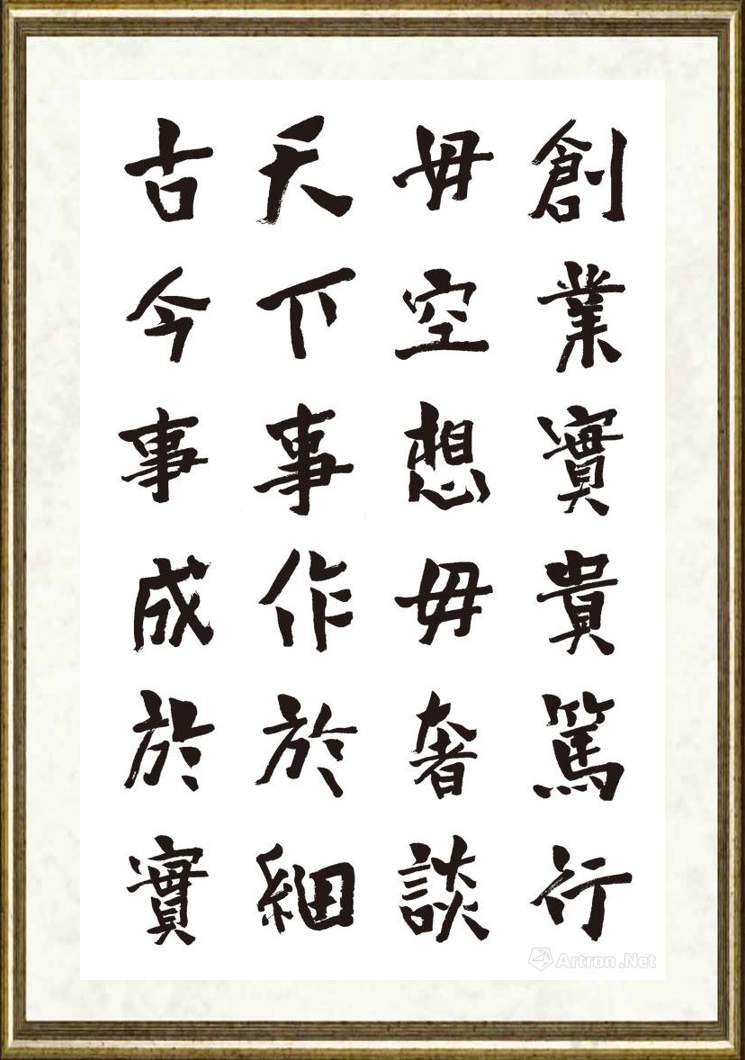 創業實貴篤行
毋空想毋奢談
天下事作於細
古今事成於實
Artron.Net